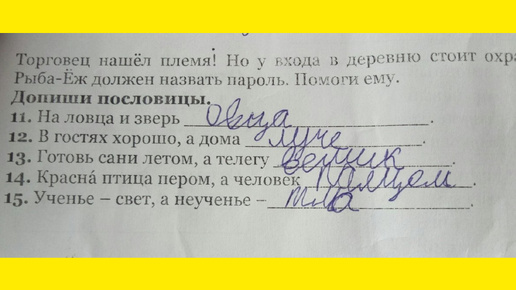 Торговец нашёл племя! Но у входа в деревню стоит охра
Рыба-Ёж должен назвать пароль. Помоги ему.
Допиши пословицы.
11. На ловца и зверь овца.
12. В гостях хорошо, а дома луче.
13. Готовь сани летом, а телегу веник.
14. Краснá птица пером, а человек палцом.
15. Ученье – свет, а неученье – тла.